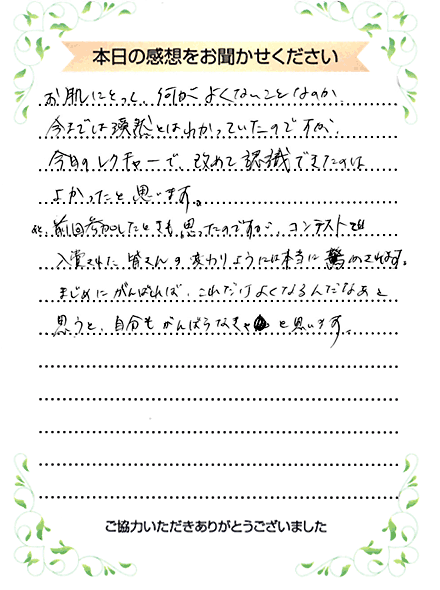 本日の感想をお聞かせください
お肌にとって、何がよくないことなのか、
今までは漠然とはわかっていたのですが、
今日のレクチャーで、改めて認識できたのは
よかったと思います。
前回参加したときも思ったのですが、コンテストで
入賞された皆さんの変わりようには本当に驚かされます。
まじめにがんばれば、これだけよくなるんだなあと
思うと、自分もがんばらなきゃと思います。
ご協力いただきありがとうございました